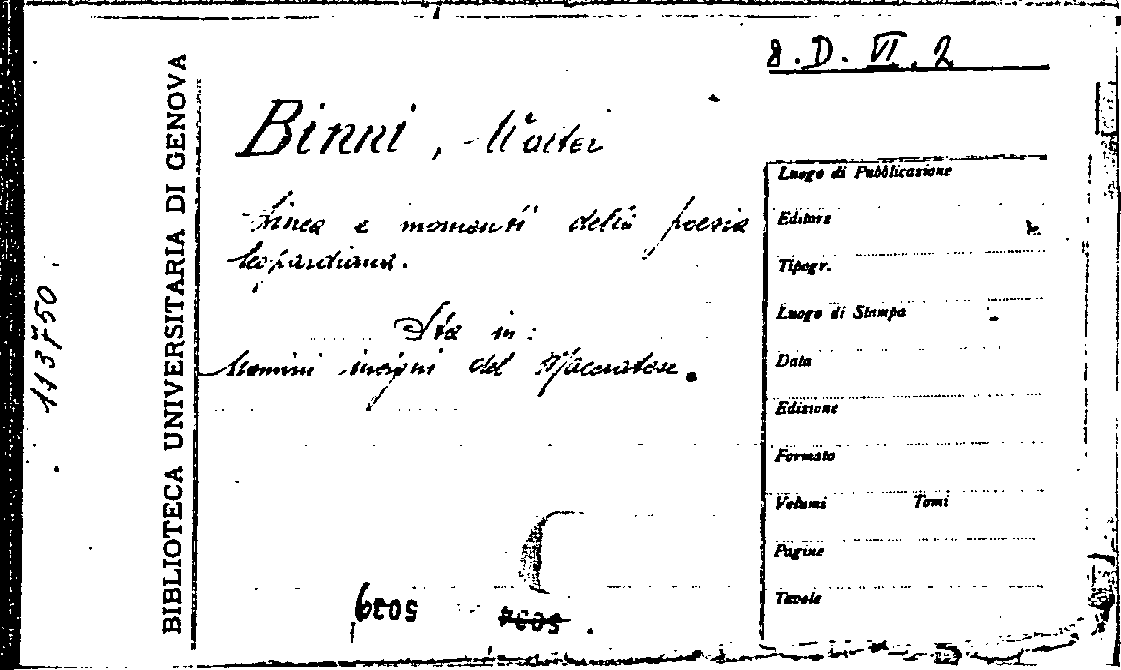 8.D.VI.2
BIBLIOTECA UNIVERSITARIA DI GENOVA
113750
Binni, Walter
Linea e momenti della poesia
leopardiana.
Sta in:
Uomini insigni del Maceratese.
Luogo di Pubblicazione
Editore
Tipogr.
Luogo di Stampa
Data
Edizione
Formato
Volumi Tomi
Pagine
Tavole